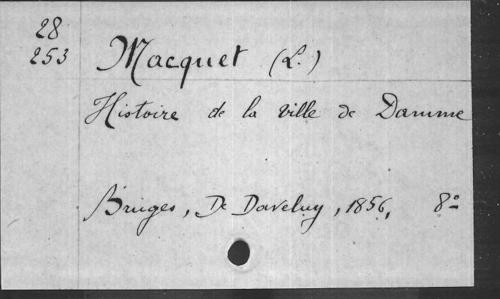 28
253
Macquet (L.)
Histoire de la ville de Damme
Bruges, De Daveluy, 1856, 8º